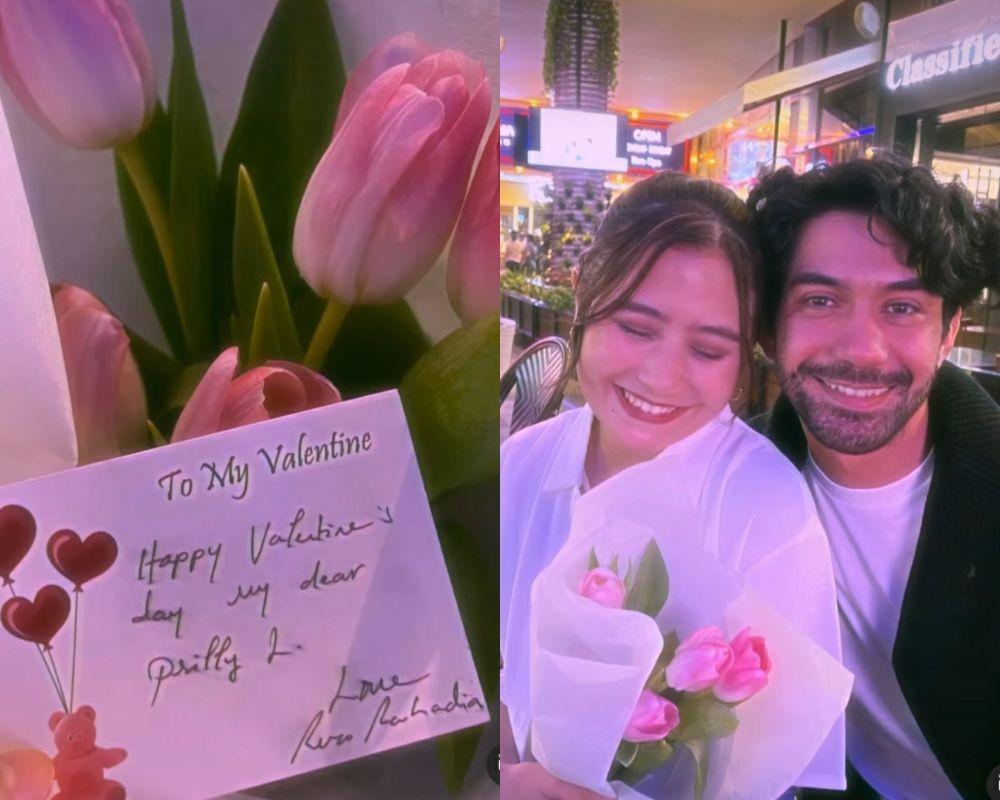 To My Valentine
Happy Valentine's
day my dear
prilly L.
Love
Classifie
OPEN